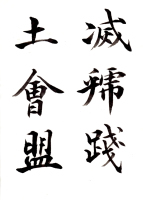 滅虢踐
土會盟